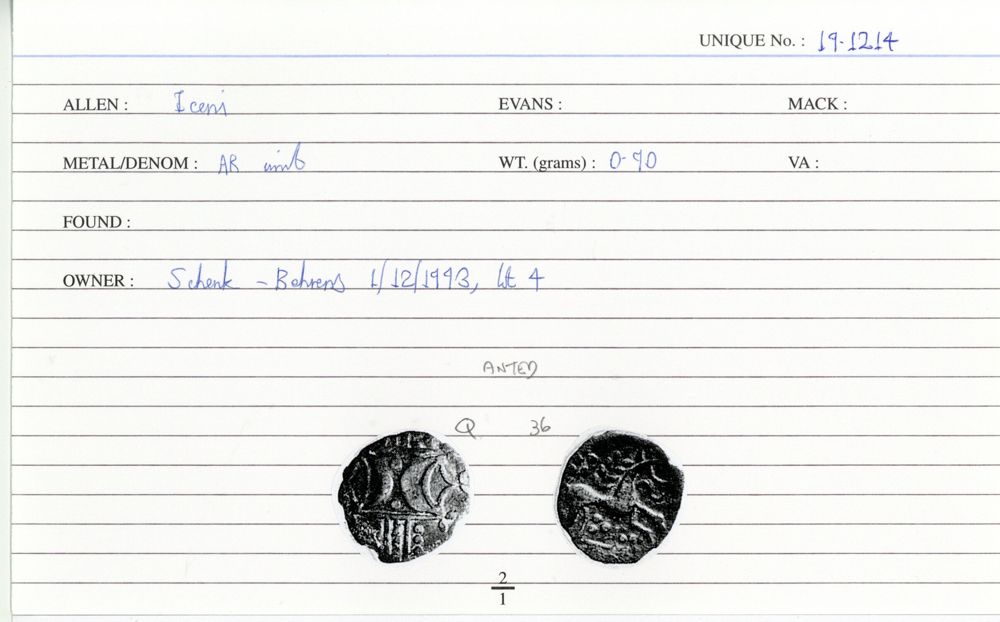 UNIQUE No. : 19-1214
ALLEN : Iceni EVANS : MACK :
METAL/DENOM : AR unit WT. (grams) : 0-90 VA :
FOUND :
OWNER : Schenk - Behrens 1/12/1993, lot 4
ANTED
Q 36
2
1